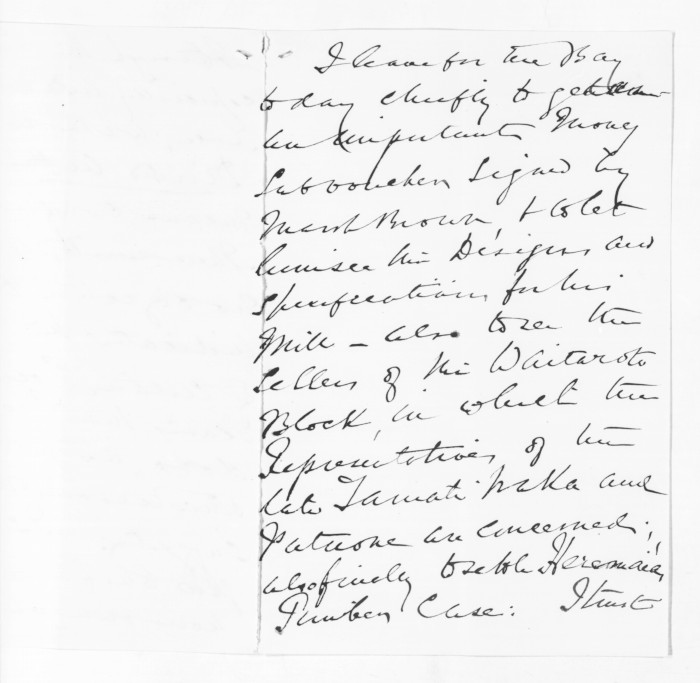 I leave for the Bay
today chiefly to get
an important Money
Subvoucher signed by
Marsh Brown, & to let
him see the Designs and
Specifications for his
Mill – also to see the
Sellers of the Waitaroto
Block, in which the
Representatives of the
late Tamati Waka and
Patuone are concerned;
also finally to settle Heremaia's
Timber Case: I trust